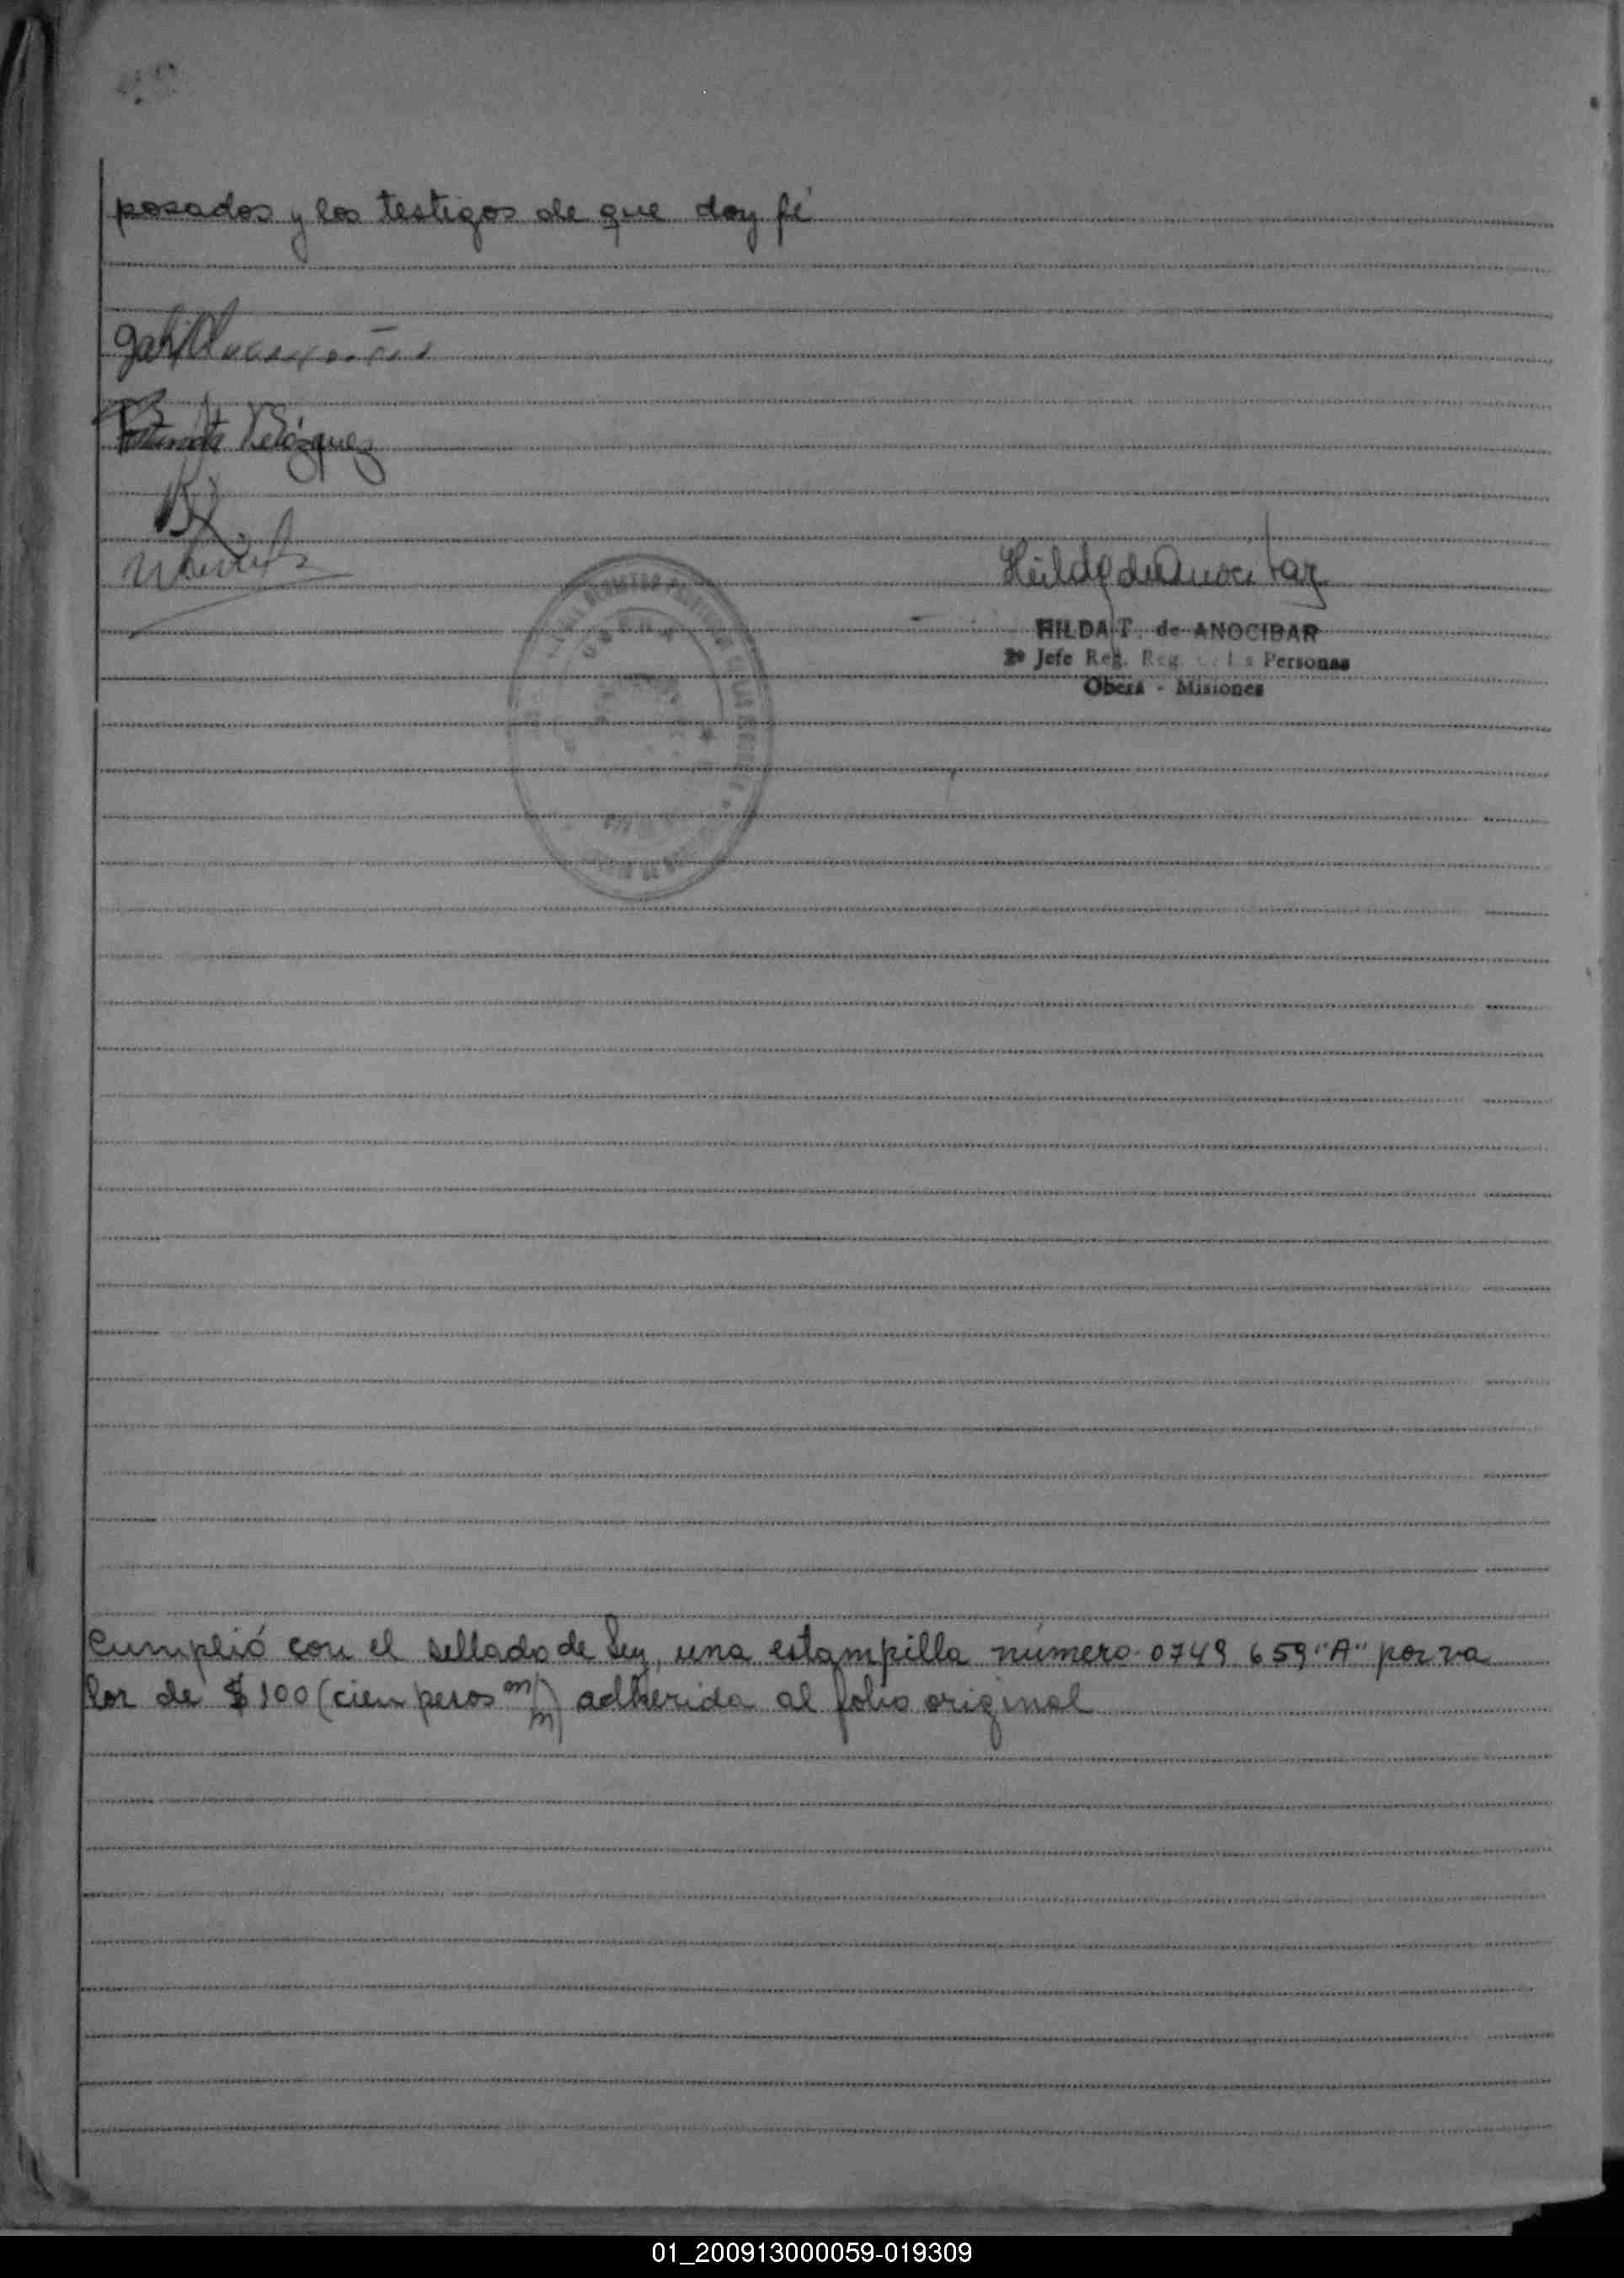 posados y los testigos de que doy fé
Velázquez
Hilda de Anocibar
HILDA T. de ANOCIBAR
2º Jefe Reg. Reg. Personas
Oberá - Misiones
Cumplió con el sellado de Ley, una estampilla número 0749659 "A" por va
lor de $100 (cien pesos m/m) adherida al folio original
01_200913000059-019309